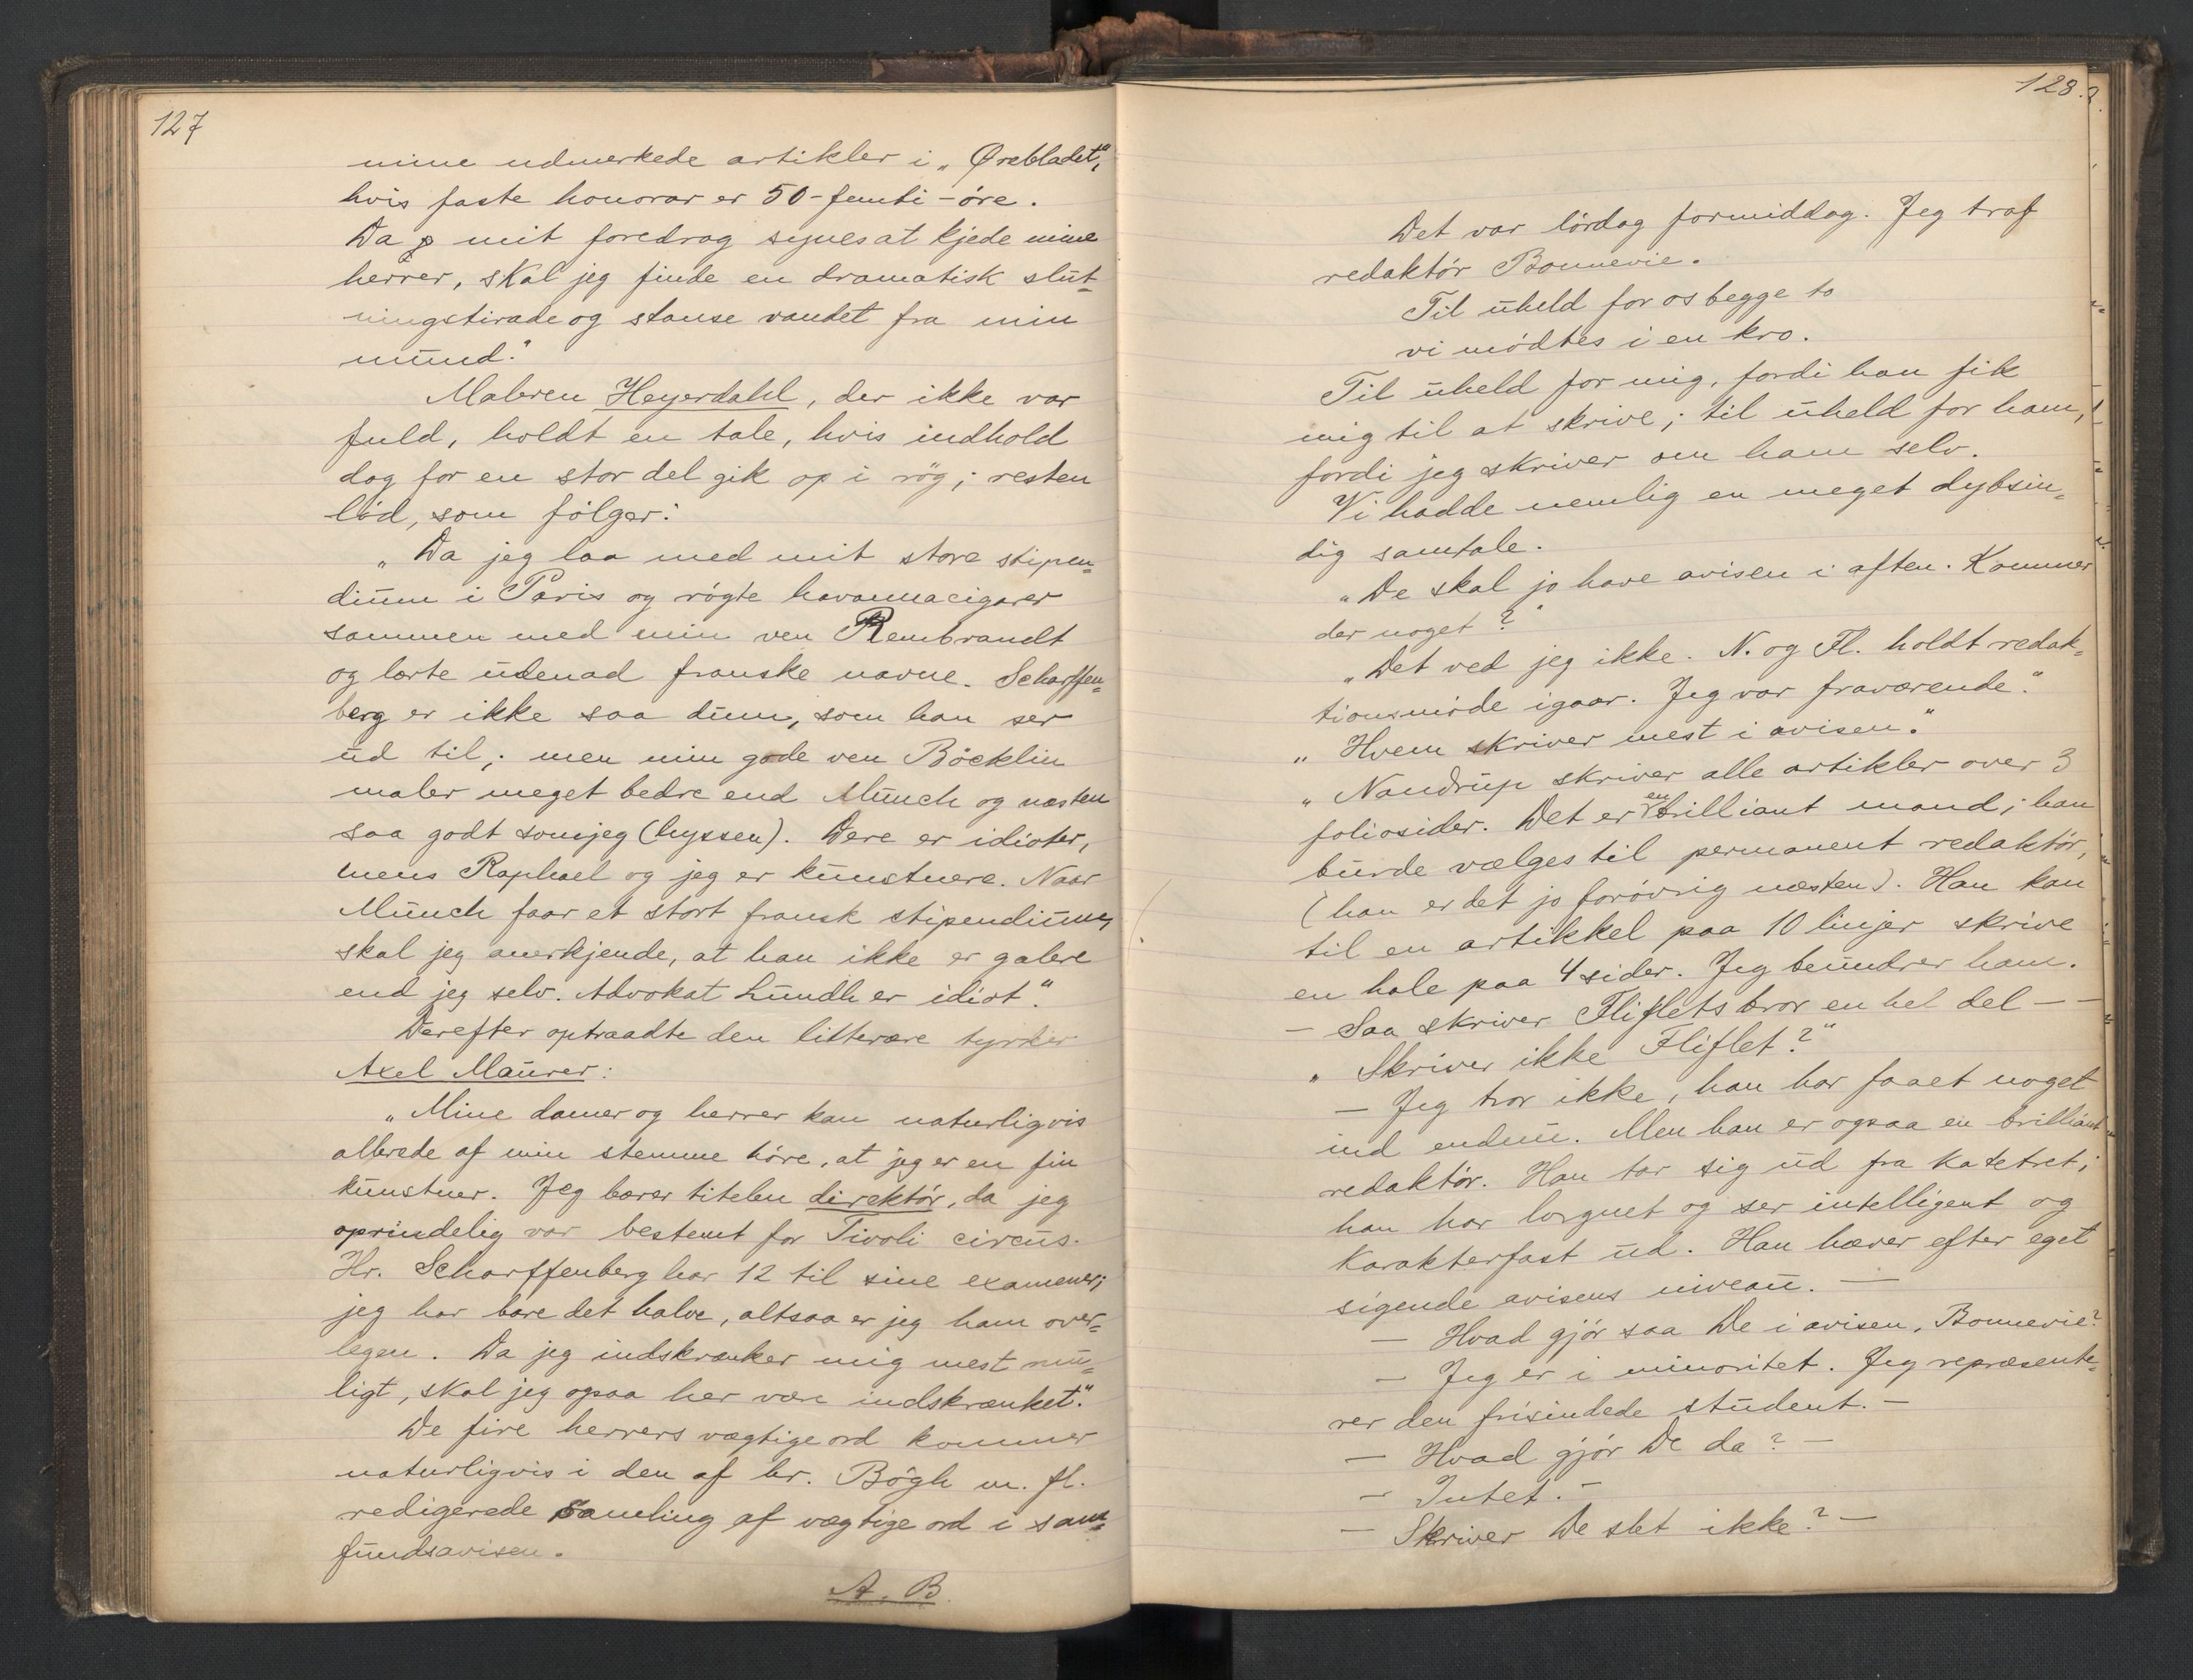 127
mine udmerkede artikler i „Ørebladet",
hvis faste honorar er 50-femti-öre.
Da mit foredrag synes at kjede mine
herrer, skal jeg finde en dramatisk slut-
ningstirade og stanse vandet fra min
mund."
Maleren Heyerdahl, der ikke var
fuld, holdt en tale, hvis indhold
dog for en stor del gik op i rög; resten
löd, som fölger:
„Da jeg laa med mit store stipen-
dium i Paris og rögte havannacigarer
sammen med min ven Rembrandt
og lærte udenad franske navne. Scharffen-
berg er ikke saa dum, som han ser
ud til; men min gode ven Böcklin
maler meget bedre end Munch og næsten
saa godt som jeg (hyssen). Dere er idioter,
mens Raphael og jeg er kunstnere. Naar
Munch faar et stort fransk stipendium,
skal jeg anerkjende, at han ikke er galere
end jeg selv. Advokat Lundh er idiot."
Derefter optraadte den litterære tyrker
Axel Maurer:
„Mine damer og herrer kan naturligvis
allerede af min stemme höre, at jeg er en fin
kunstner. Jeg bærer titelen direktör, da jeg
oprindelig var bestemt for Tivoli circus.
Hr. Scharffenberg har 12 til sine examener;
jeg har bare det halve, altsaa er jeg ham over-
legen. Da jeg indskrænker mig mest mu-
ligt, skal jeg ogsaa her være indskrænket."
De fire herrers vægtige ord kommer
naturligvis i den af hr. Bögh m. fl.
redigerede samling af vægtige ord i sam-
fundsavisen.
A. B.
128.
Det var lördag formiddag. Jeg traf
redaktör Bonnevie.
Til uheld for os begge to
vi mödtes i en kro.
Til uheld for mig, fordi han fik
mig til at skrive; til uheld for ham,
fordi jeg skriver om ham selv.
Vi hadde nemlig en meget dybsin-
dig samtale.
„De skal jo have avisen i aften. Kommer
der noget?"
„Det ved jeg ikke. N. og Fl. holdt redak-
tionsmöde igaar. Jeg var fraværende."
„Hvem skriver mest i avisen."
„Nandrup skriver alle artikler over 3
foliosider. Det er en brilliant mand; han
burde vælges til permanent redaktör,
(han er det jo forövrig næsten). Han kan
til en artikkel paa 10 linjer skrive
en hale paa 4 sider. Jeg beundrer ham.
— Saa skriver Fliflets bror en hel del — —
„Skriver ikke Fliflet?"
— Jeg tror ikke, han har faaet noget
ind endnu. Men han er ogsaa en brilliant
redaktör. Han tar sig ud fra katetret;
han har lorgnet og ser intelligent og
karakterfast ud. Han hæver efter eget
sigende avisens niveau. —
— Hvad gjör saa De i avisen, Bonnevie?
— Jeg er i minoritet. Jeg repræsente-
rer den frisindede student. —
— Hvad gjör De da? —
— Intet. —
— Skriver De slet ikke? —